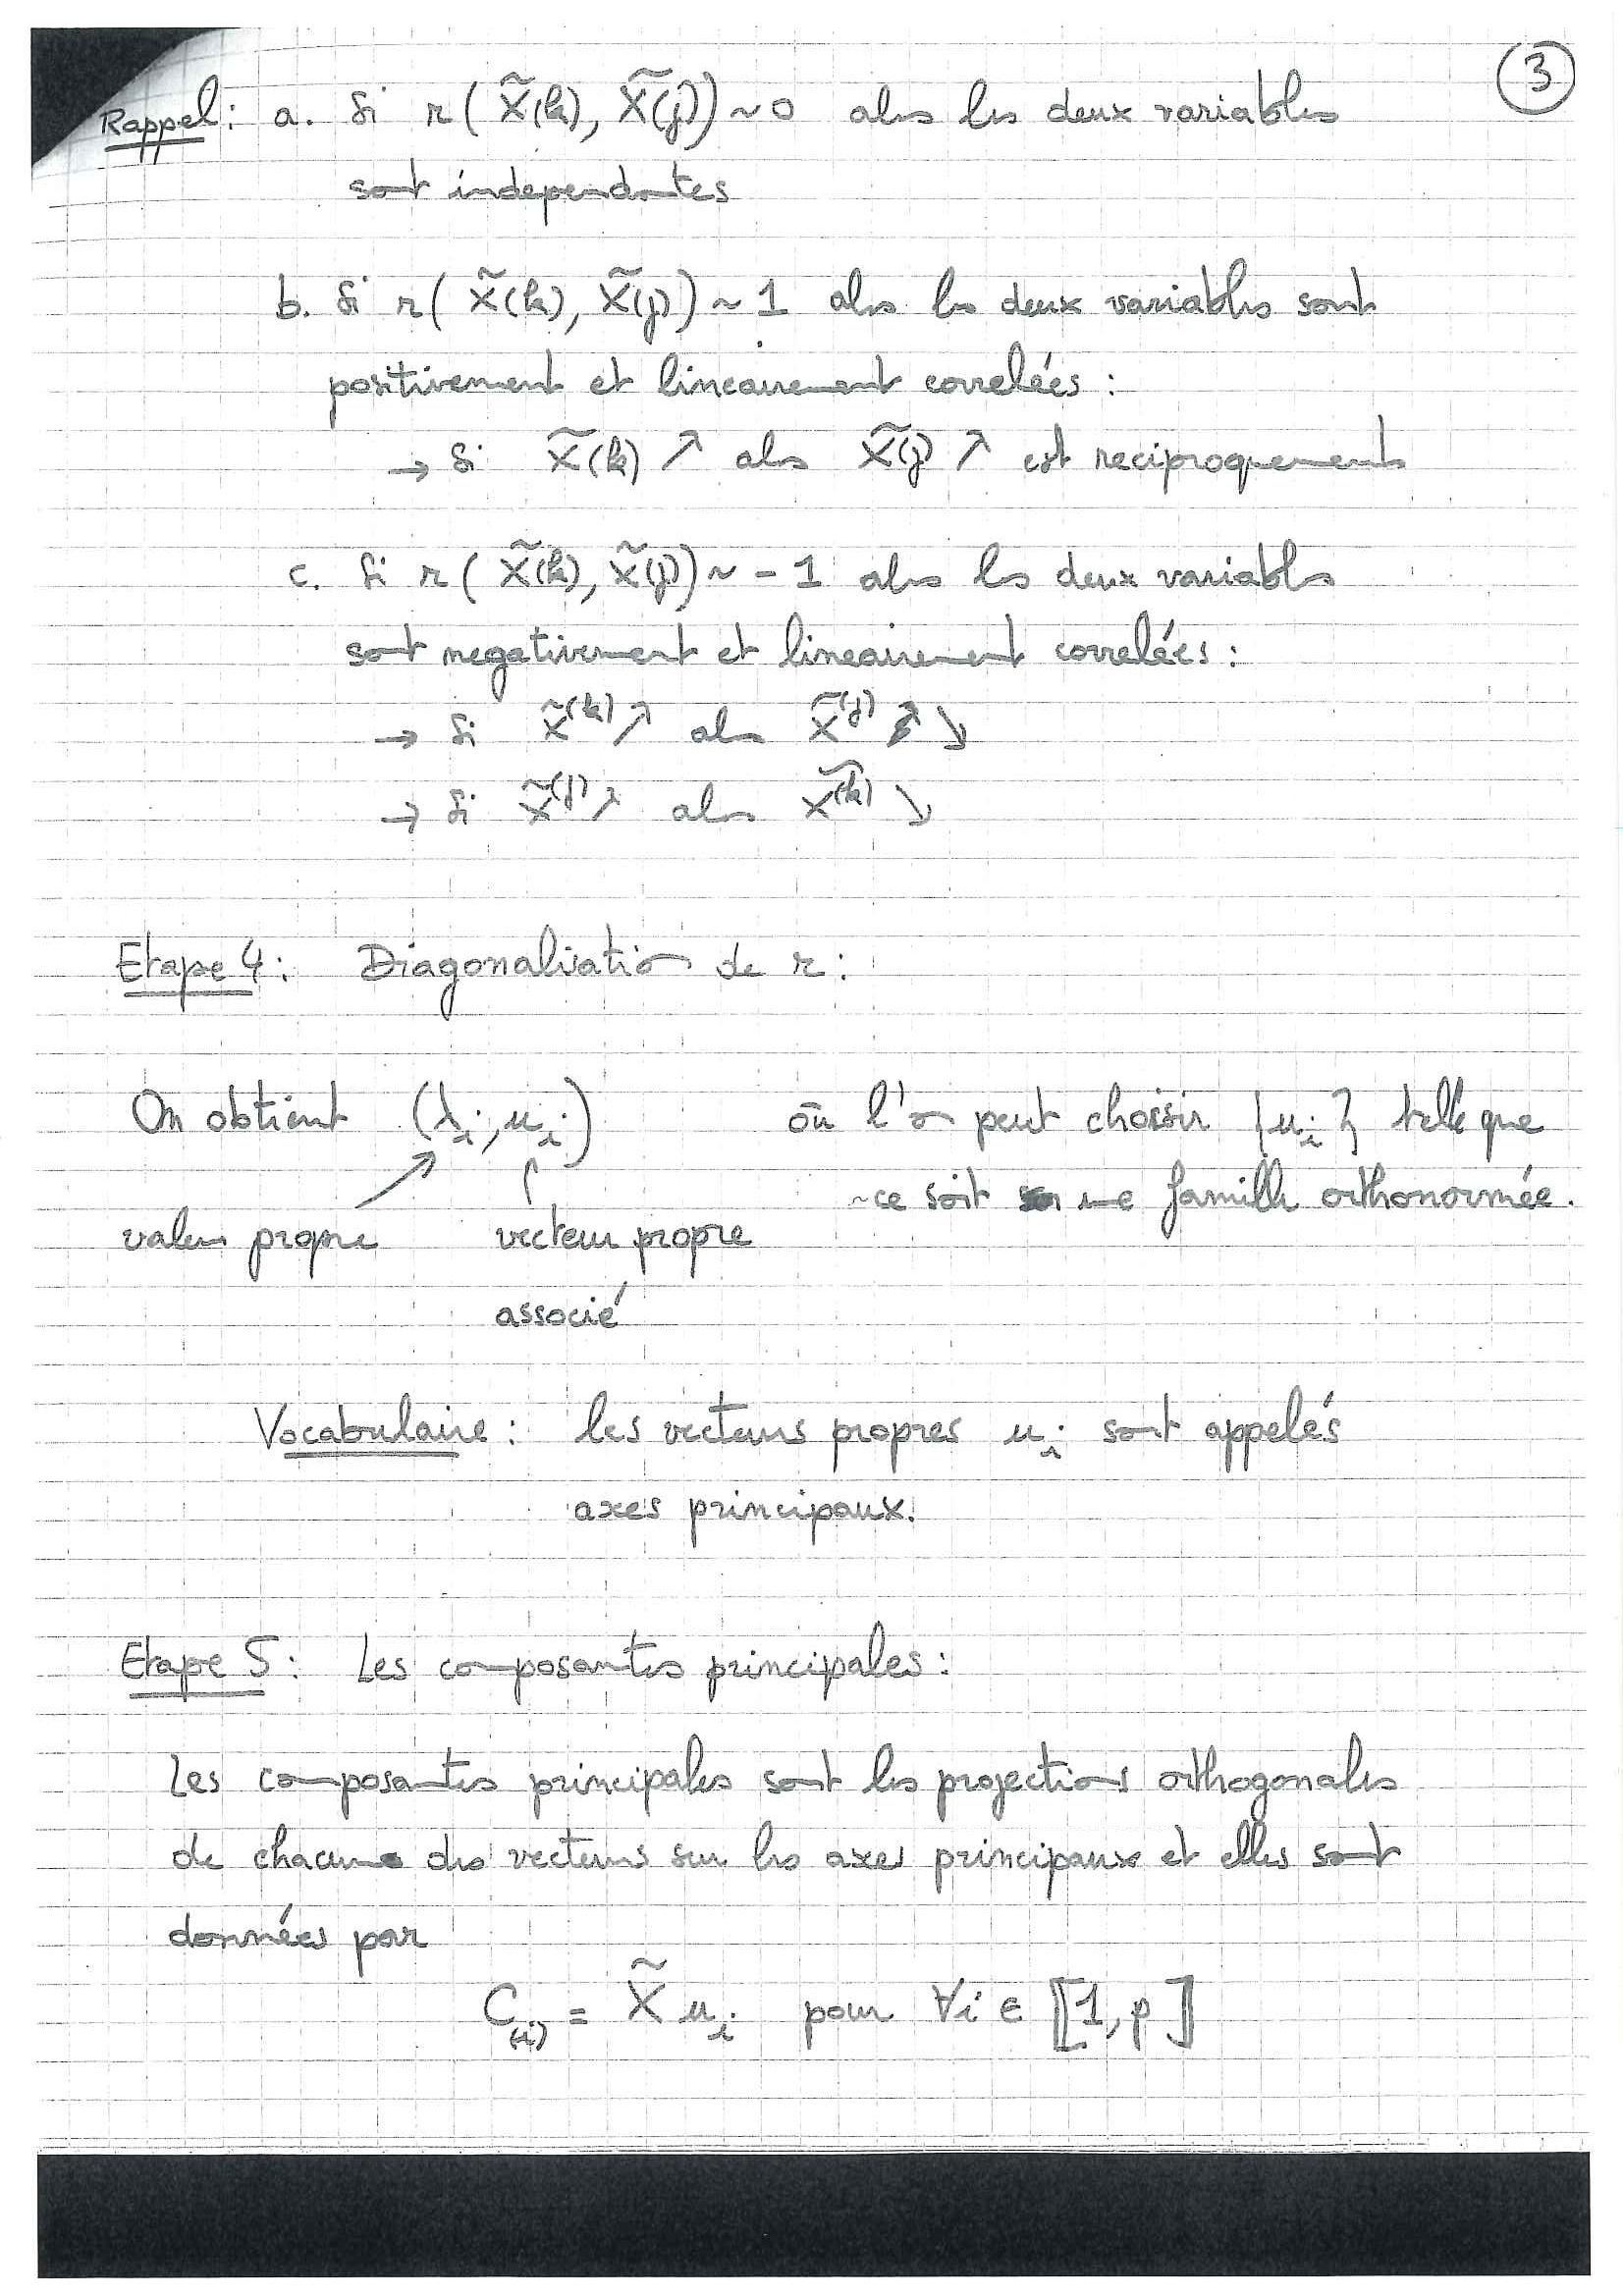 3
Rappel : a. Si r(X̃(k), X̃(j)) ~ 0 alors les deux variables
sont independantes
b. Si r(X̃(k), X̃(j)) ~ 1 alors les deux variables sont
positivement et lineairement correlées :
→ Si X̃(k) ↗ alors X̃(j) ↗ est reciproquement
c. Si r(X̃(k), X̃(j)) ~ -1 alors les deux variables
sont negativement et lineairement correlées :
→ Si X̃^(k) ↗ alors X̃^(j) ↘
→ Si X̃^(j) ↗ alors X̃^(k) ↘
Etape 4 : Diagonalisation de r :
On obtient (λi, ui) où l'on peut choisir {ui} telle que
ce soit une famille orthonormée.
valeur propre vecteur propre
associé
Vocabulaire : les vecteurs propres ui sont appelés
axes principaux.
Etape 5 : Les composantes principales :
Les composantes principales sont les projections orthogonales
de chacun des vecteurs sur les axes principaux et elles sont
données par
C(i) = X̃ ui pour ∀i ∈ ⟦1, p⟧